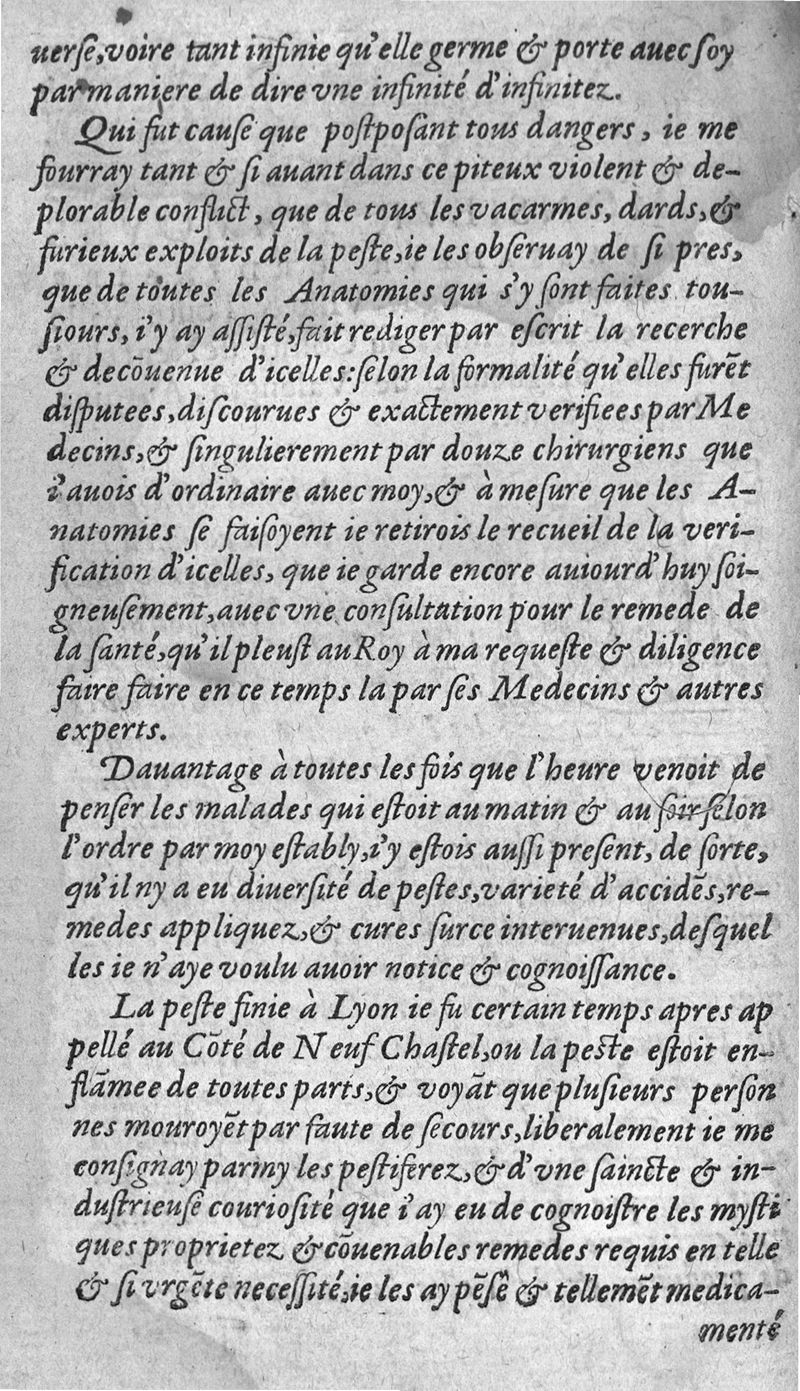 uerſe,voire tant infinie qu'elle germe & porte auec ſoy
par maniere de dire vne infinité d'infinitez.
Qui fut cauſe que poſtpoſant tous dangers, ie me
fourray tant & ſi auant dans ce piteux violent & de-
plorable conflict, que de tous les vacarmes, dards,&
furieux exploits de la peſte,ie les obſeruay de ſi pres,
que de toutes les Anatomies qui s'y ſont faites tou-
ſiours, i'y ay aſſiſté,fait rediger par eſcrit la recerche
& decōuenue d'icelles:ſelon la formalité qu'elles furēt
diſputees,diſcourues & exactement verifiees par Me
decins,& ſingulierement par douze chirurgiens que
i'auois d'ordinaire auec moy,& à meſure que les A-
natomies ſe faiſoyent ie retirois le recueil de la veri-
fication d'icelles, que ie garde encore auiourd'huy ſoi-
gneuſement,auec vne conſultation pour le remede de
la ſanté,qu'il pleuſt au Roy à ma requeſte & diligence
faire faire en ce temps la par ſes Medecins & autres
experts.
Dauantage à toutes les fois que l'heure venoit de
penſer les malades qui eſtoit au matin & au ſoir ſelon
l'ordre par moy eſtably,i'y eſtois auſſi preſent, de ſorte,
qu'il ny a eu diuerſité de peſtes,varieté d'accidēs,re-
medes appliquez,& cures ſurce interuenues,deſquel
les ie n'aye voulu auoir notice & cognoiſſance.
La peſte finie à Lyon ie fu certain temps apres ap
pellé au Cōté de Neuf Chaſtel,ou la peste eſtoit en-
flāmee de toutes parts,& voyāt que pluſieurs perſon
nes mouroyēt par faute de ſecours,liberalement ie me
conſignay parmy les peſtiferez,& d'vne ſaincte & in-
duſtrieuſe couriоſité que i'ay eu de cognoiſtre les myſti
ques proprietez & cōuenables remedes requis en telle
& ſi vrgēte neceſſité,ie les ay pēſé & tellemēt medica-
menté